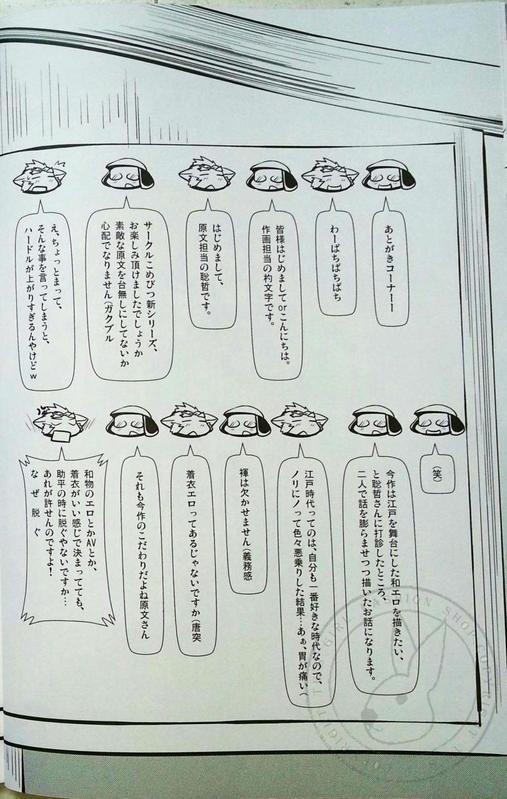 あとがきコーナーー
わーぱちぱちぱち
皆様はじめましてorこんにちは。
作画担当の杓文字です。
はじめまして、
原文担当の聡哲です。
サークルこめびつ新シリーズ、
お楽しみ頂けましたでしょうか
素敵な原文を台無しにしてないか
心配でなりません（ガクブル
え、ちょっとまって、
そんな事を言ってしまうと、
ハードルが上がりすぎるんやけどw
（笑）
今作は江戸を舞台にした和エロを描きたい、
と聡哲さんに打診したところ、
二人で話を膨らませつつ描いたお話になります。
江戸時代ってのは、自分も一番好きな時代なので、
ノリにノって色々悪乗りした結果…あぁ、胃が痛い（
褌は欠かせません（義務感
着衣エロってあるじゃないですか（唐突
それも今作のこだわりだよね原文さん
和物のエロとかAVとか、
着衣がいい感じで決まってても、
助平の時に脱ぐやないですか…
あれが許せんのですよ！
なぜ脱ぐ